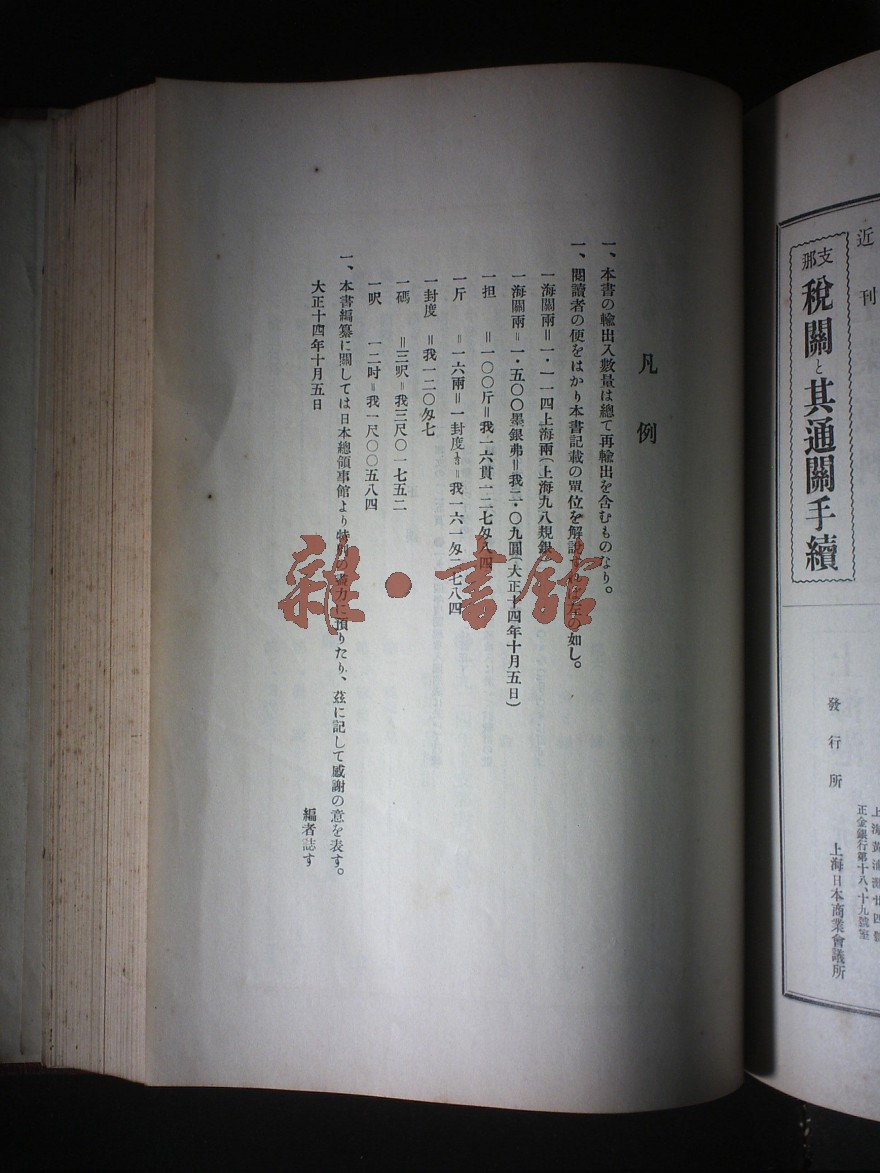 近刊
支那税關と其通關手續
發行所
正金銀行第十八、十九號室
上海日本商業會議所
凡例
一、本書の輸出入數量は總て再輸出を含むものなり。
一、閲讀者の便をはかり本書記載の單位を解說 左の如し。
一海關兩＝一・一一四上海兩（上海九八規銀）
一海關兩＝一・五〇〇墨銀弗＝我二・〇九圓（大正十四年十月五日）
一担＝一〇〇斤＝我一六貫一二七匁八四
一斤＝一六兩＝一封度⅓＝我一六一匁二七八四
一封度＝我一二〇匁七
一碼＝三呎＝我三尺〇一七五二
一呎＝一二吋＝我一尺〇〇五八四
一、本書編纂に關しては日本總領事館より特別の 力に預りたり、茲に記して感謝の意を表す。
大正十四年十月五日
編者誌す
雜・書館